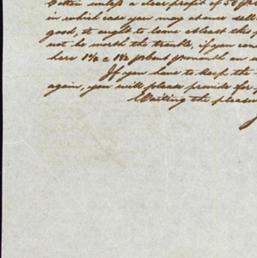 Cotton unless a clear profit of 50
in which case you may above sell
good, it ought to leave at least this
not be worth the trouble, if you can
here 1% a per month on a
If you have to keep the
again, you will please provide for
Waiting the pleasure